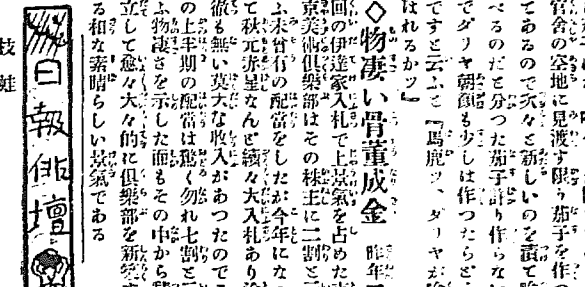 官舍の空地に見渡す限り茄子を作つ
てあるので次々と新しいのを漬て
べるのだと分つた茄子計り作らない
でダリヤ朝顔も少しは作つたらど
ですと云ふと『馬鹿ツ、ダリヤが
はれるかツ』
◇物凄い骨董成金 昨年
回の伊達家入札で上景氣を占めた
京美術俱樂部はその株主に二割と
ふ未曾有の配當をしたが今年にな
て秋元赤星なんど續々大入札あり
徹も無い莫大な收入があつたので
の上半期の配當は驚く勿れ七割と
ふ物凄さを示した而もその中から
立して愈々大々的に俱樂部を新築
る和な素晴らしい景氣である
日報俳壇